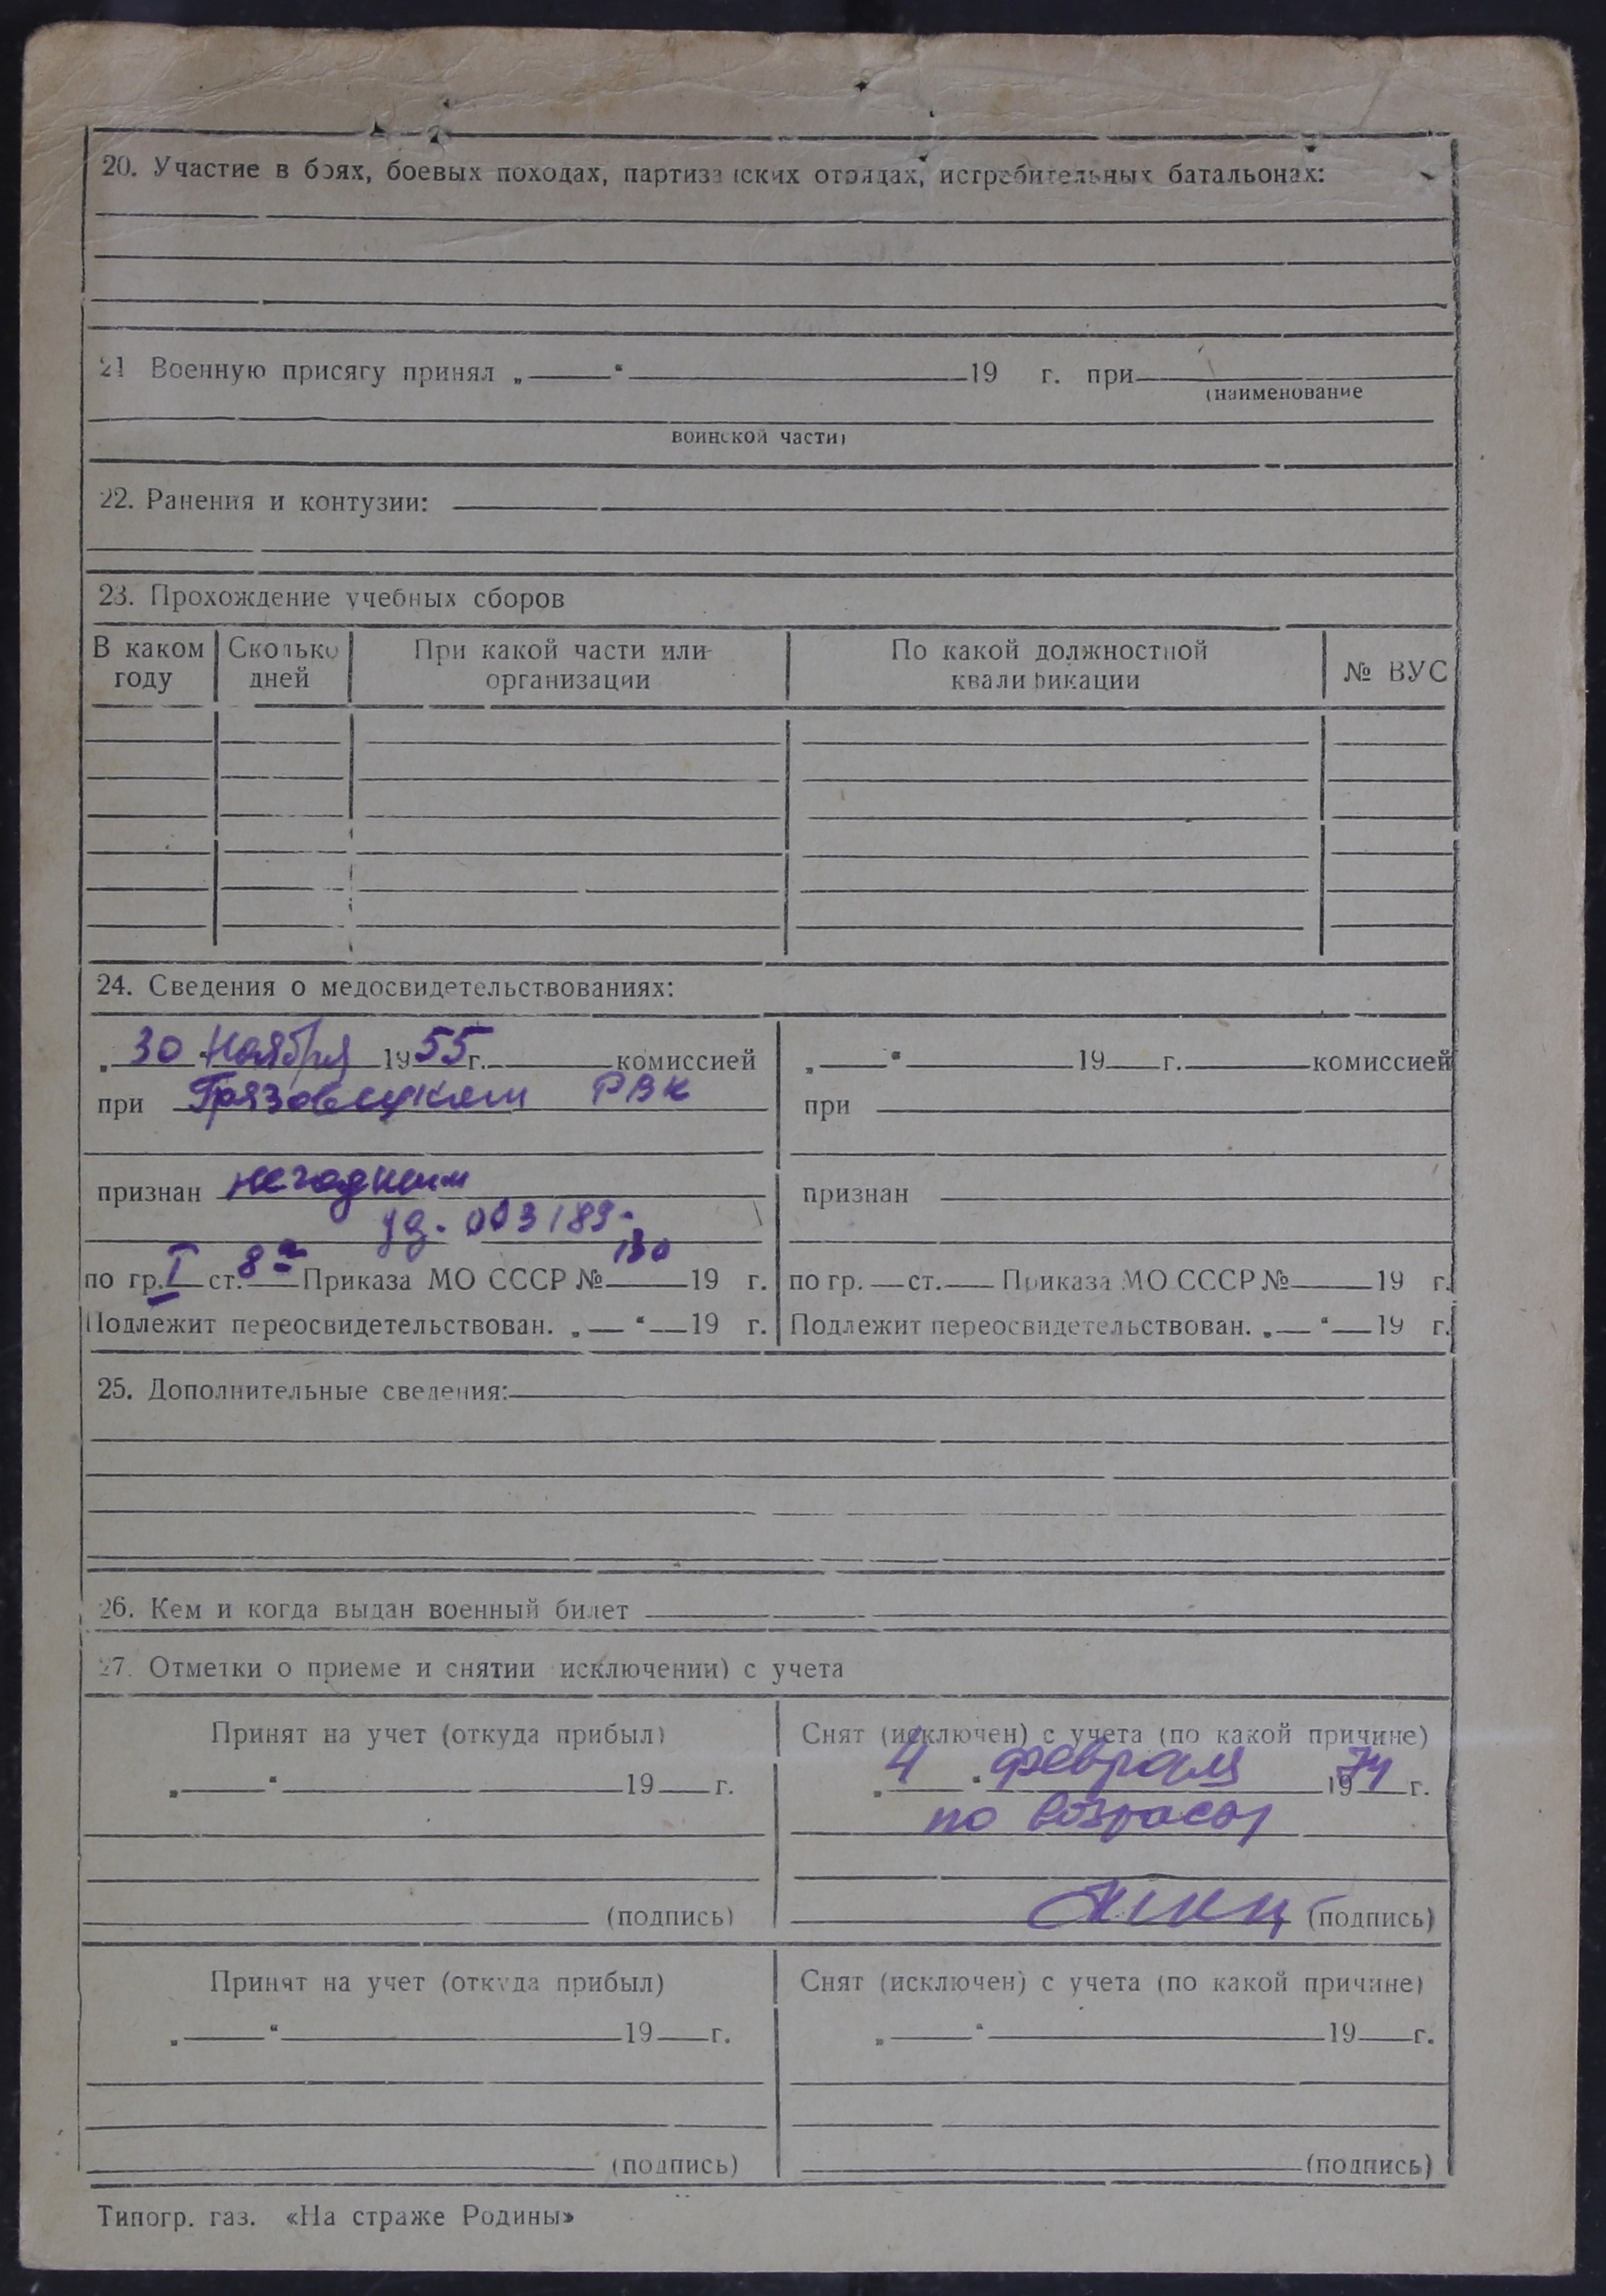 20. Участие в боях, боевых походах, партизанских отрядах, истребительных батальонах:
21 Военную присягу принял „ “ 19 г. при
(наименование
воинской части)
22. Ранения и контузии:
23. Прохождение учебных сборов
В каком году Сколько дней При какой части или организации По какой должностной квалификации № ВУС
24. Сведения о медосвидетельствованиях:
„ 30 “ ноября 1955 г. комиссией
при Грязовецком РВК
признан негодным
уд. 003189.
по гр. I ст. 8а Приказа МО СССР № 130 19 г.
Подлежит переосвидетельствован. „ “ 19 г.
„ “ 19 г. комиссией
при
признан
по гр. ст. Приказа МО СССР № 19 г.
Подлежит переосвидетельствован. „ “ 19 г.
25. Дополнительные сведения:
26. Кем и когда выдан военный билет
27. Отметки о приеме и снятии исключении) с учета
Принят на учет (откуда прибыл)
„ “ 19 г.
(подпись)
Снят (исключен) с учета (по какой причине)
„ 4 “ февраля 1974 г.
по возрасту
(подпись)
Принят на учет (откуда прибыл)
„ “ 19 г.
(подпись)
Снят (исключен) с учета (по какой причине)
„ “ 19 г.
(подпись)
Типогр. газ. «На страже Родины»